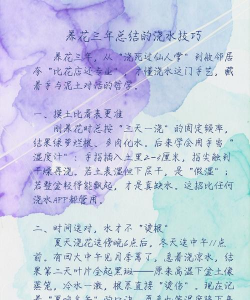 养花三年总结的浇水技巧
养花三年，从“浇死过仙人掌”到被邻居
夸“比花店还专业”，才懂浇水这门手艺，藏
着手与泥土对话的哲学。
一、摸土比看表更准
刚养花时总按“三天一浇”的固定频率，
结果绿萝烂根、多肉化水。后来学会用手当“
湿度计”：手指插入土里2-3厘米，指尖触到
干燥再浇。若土表湿但下层干，是“假湿”；
若整盆轻得能飘起，才是真缺水。这招比任何
浇水APP都管用。
二、时间选对，水才不“烫根”
夏天浇花选傍晚6点后，冬天选中午11点
前。有回大中午见月季蔫了，急着浇凉水，结
果第二天叶片全起黑斑——原来高温下盆土像
蒸笼，冷水一激，根系直接“烫伤”。现在记